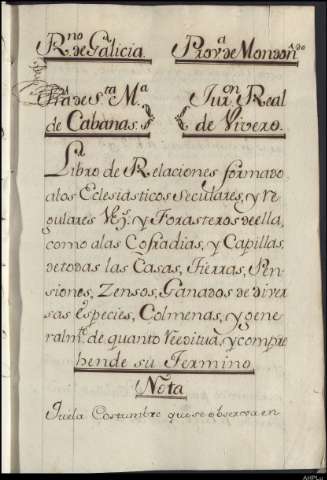 Rno de Galicia Prova de Mondoñdo
de Sta Ma Juron Real
de Cabanas. de Vivero.
Libro de Relaciones formado
a los Eclesiasticos Seculares, y Re
gulares Vezs. y Forasteros de ella,
como a las Cofradias, y Capillas,
de todas las Casas, Tierras, Pen
siones, Zensos, Ganados de diver
sas especies, Colmenas, y gene
ralmte. de quanto Reeditua, y compre
hende su Termino
Nota
Que la Costumbre que se observa en
AHPLu